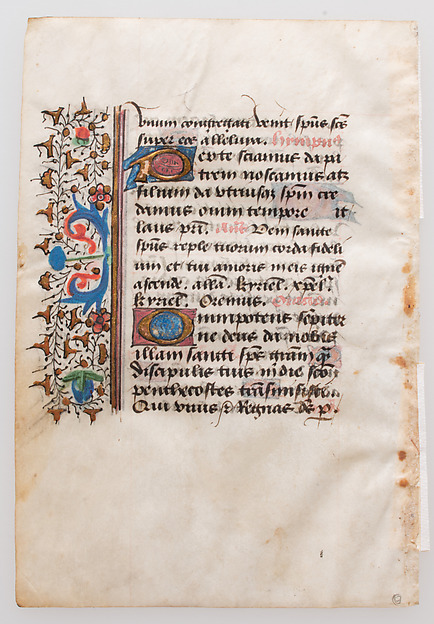 vnum congregati venit sp̄us sc̄s
super eos allelura. 
P erte sciamus da pa
trem noscamus atq
filium da vtriusq sp̄m cre
damus omni tempore it
laus pr̄i. Veni sancte
sp̄us reple tuorum corda fideli
um et tui amoris in eis ignē
ascende. alla. kyriel. xp̄el.
kyriel. Oremus.
O mnipotens sepiter
ne deus da nobis
illam sancti sp̄s grām q̄
discipulis tuis in die
penthecostes
Qui viuis Regnas